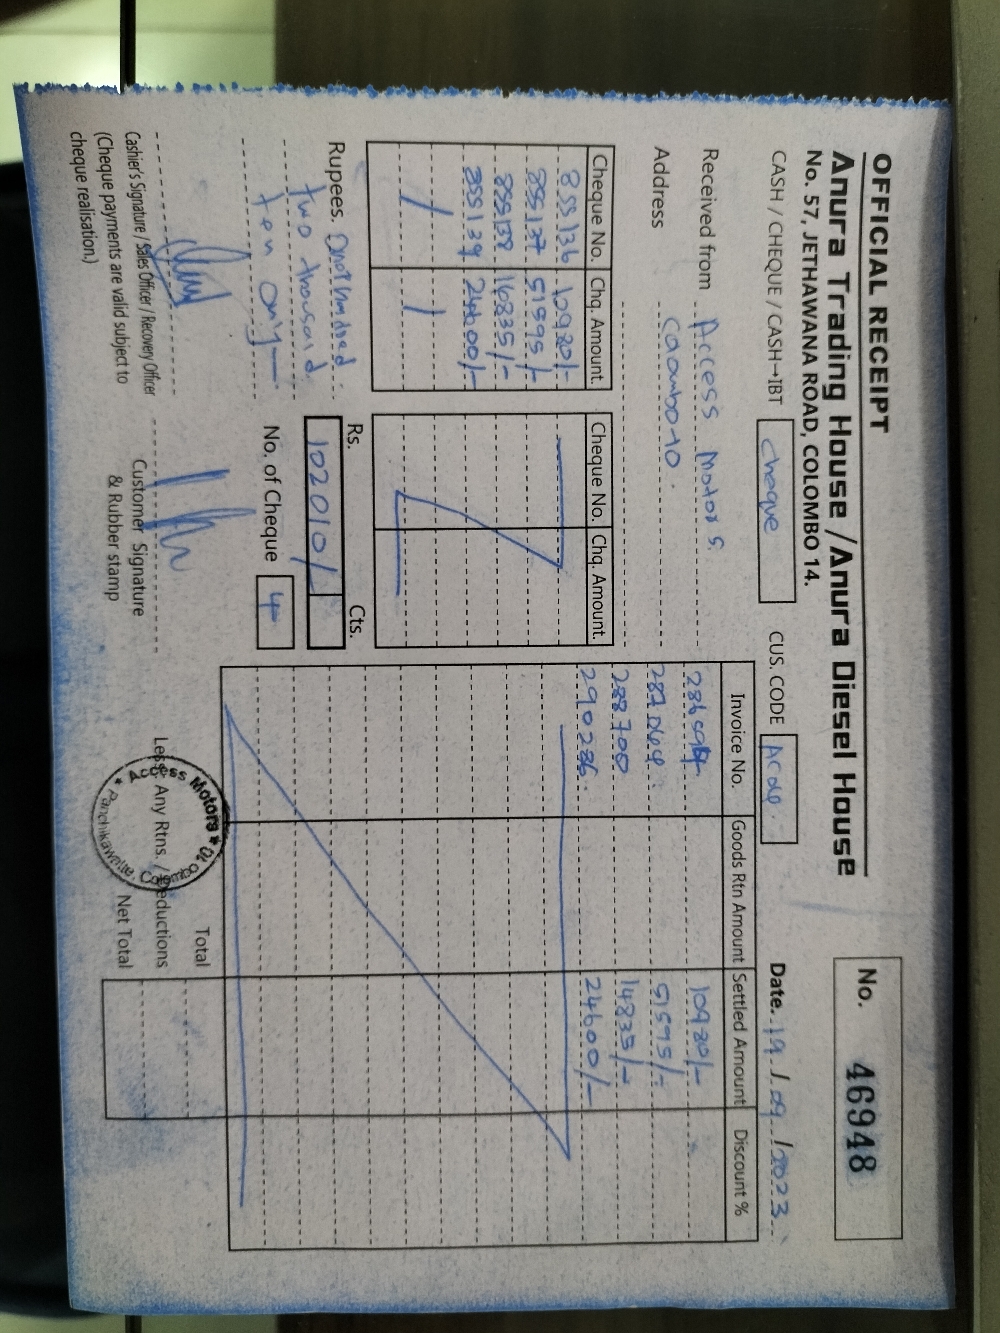 OFFICIAL RECEIPT
Anura Trading House / Anura Diesel House
No. 57, JETHAWANA ROAD, COLOMBO 14.
No. 46948
CASH / CHEQUE / CASH→IBT cheque CUS. CODE Date. 19 / 09 / 2023
Received from Access Motors.
Address
Cheque No. Chq. Amount.
855136 10980/-
855137 51595/-
855138
855139 24600/-
Cheque No. Chq. Amount.
Invoice No. Goods Rtn Amount Settled Amount Discount %
10980/-
51595/-
288700 14835/-
290286. 24600/-
Rupees. One hundred
two thousand
ten only
Rs. Cts.
102010/-
No. of Cheque 4
Total
Less: Any Rtns. / Deductions
Net Total
Cashier's Signature / Sales Officer / Recovery Officer
(Cheque payments are valid subject to
cheque realisation.)
Customer Signature
& Rubber stamp
Access Motors
Panchikawatte Colombo